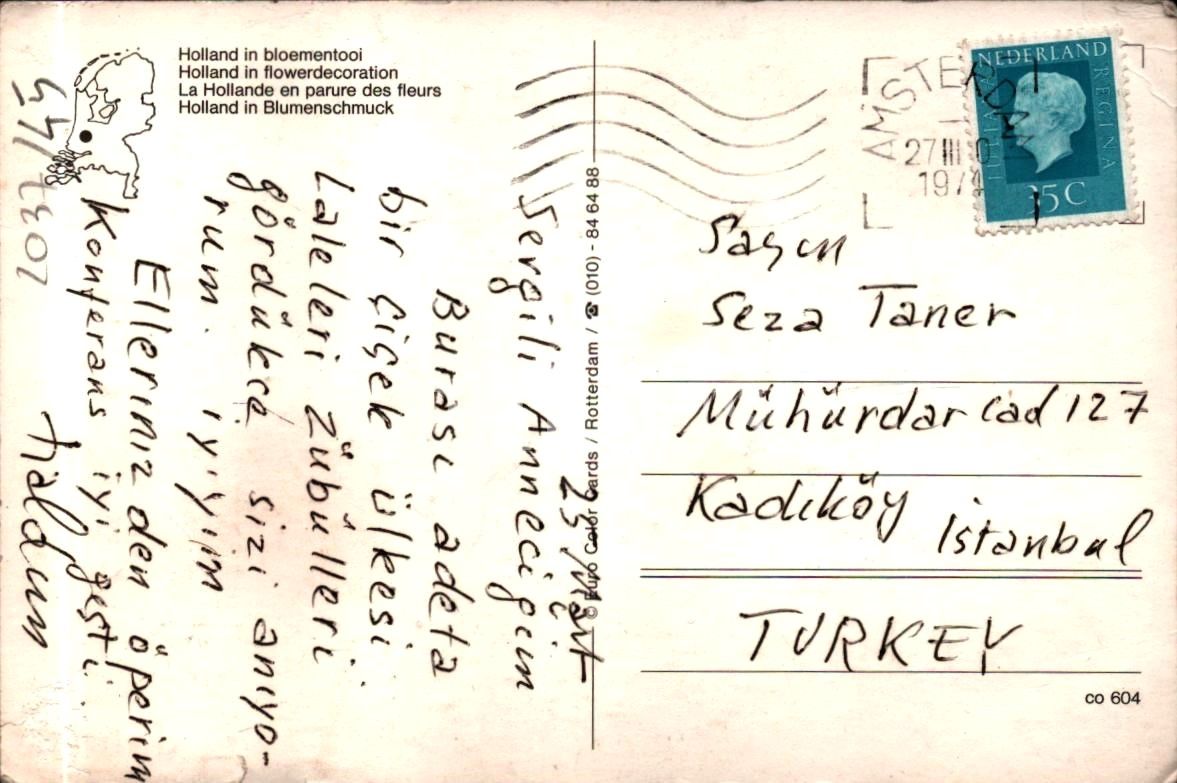 Holland in bloementooi
Holland in flowerdecoration
La Hollande en parure des fleurs
Holland in Blumenschmuck
25 Mart
Sevgili Anneciğim
Burası adeta
bir çiçek ülkesi.
Laleleri Zübülleri
gördükçe sizi anıyo-
rum. iyiyim
Ellerinizden öperim
Konferans iyi geçti.
Haldun
© Euro Color Cards / Rotterdam / ☎ (010) - 84 64 88
AMSTERDAM
27 III
197
NEDERLAND
JULIANA
REGINA
35 C
Sayın
Seza Taner
Mühürdar Cad 127
Kadıköy
istanbul
TURKEY
co 604